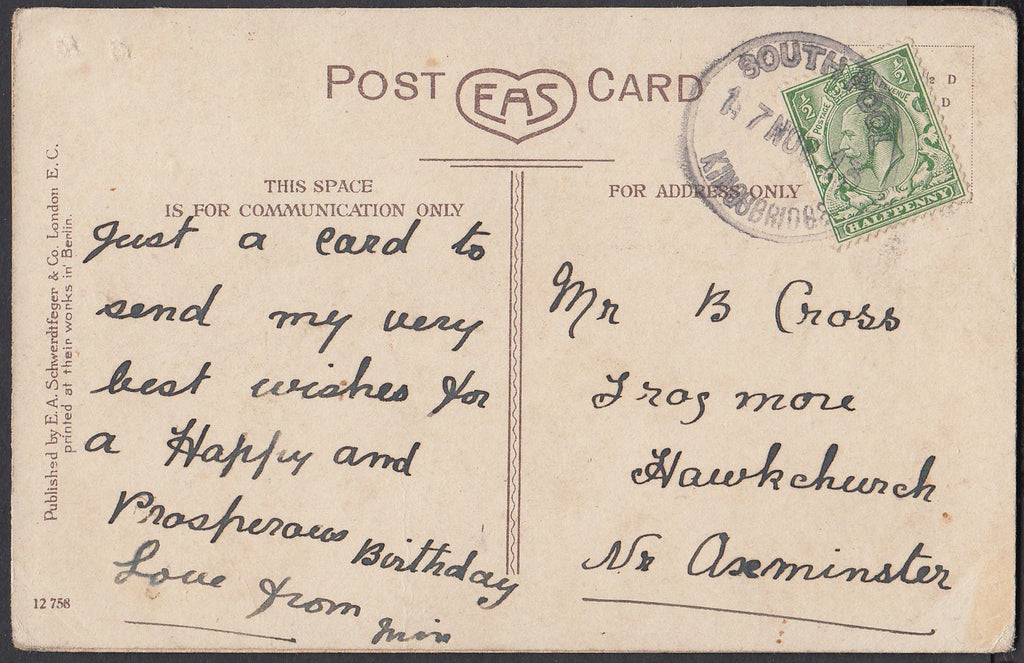 POST EAS CARD
THIS SPACE
IS FOR COMMUNICATION ONLY
Just a card to
send my very
best wishes for
a Happy and
Prosperous Birthday
Love from
FOR ADDRESS ONLY
Mr B Cross
Frogmore
Hawkchurch
Nr Axminster
SOUTH POOL
7 NO
KINGSBRIDGE
POSTAGE REVENUE
½ ½
HALFPENNY
½ D
D
Published by E. A. Schwerdtfeger & Co. London E. C.
printed at their works in Berlin.
12 758